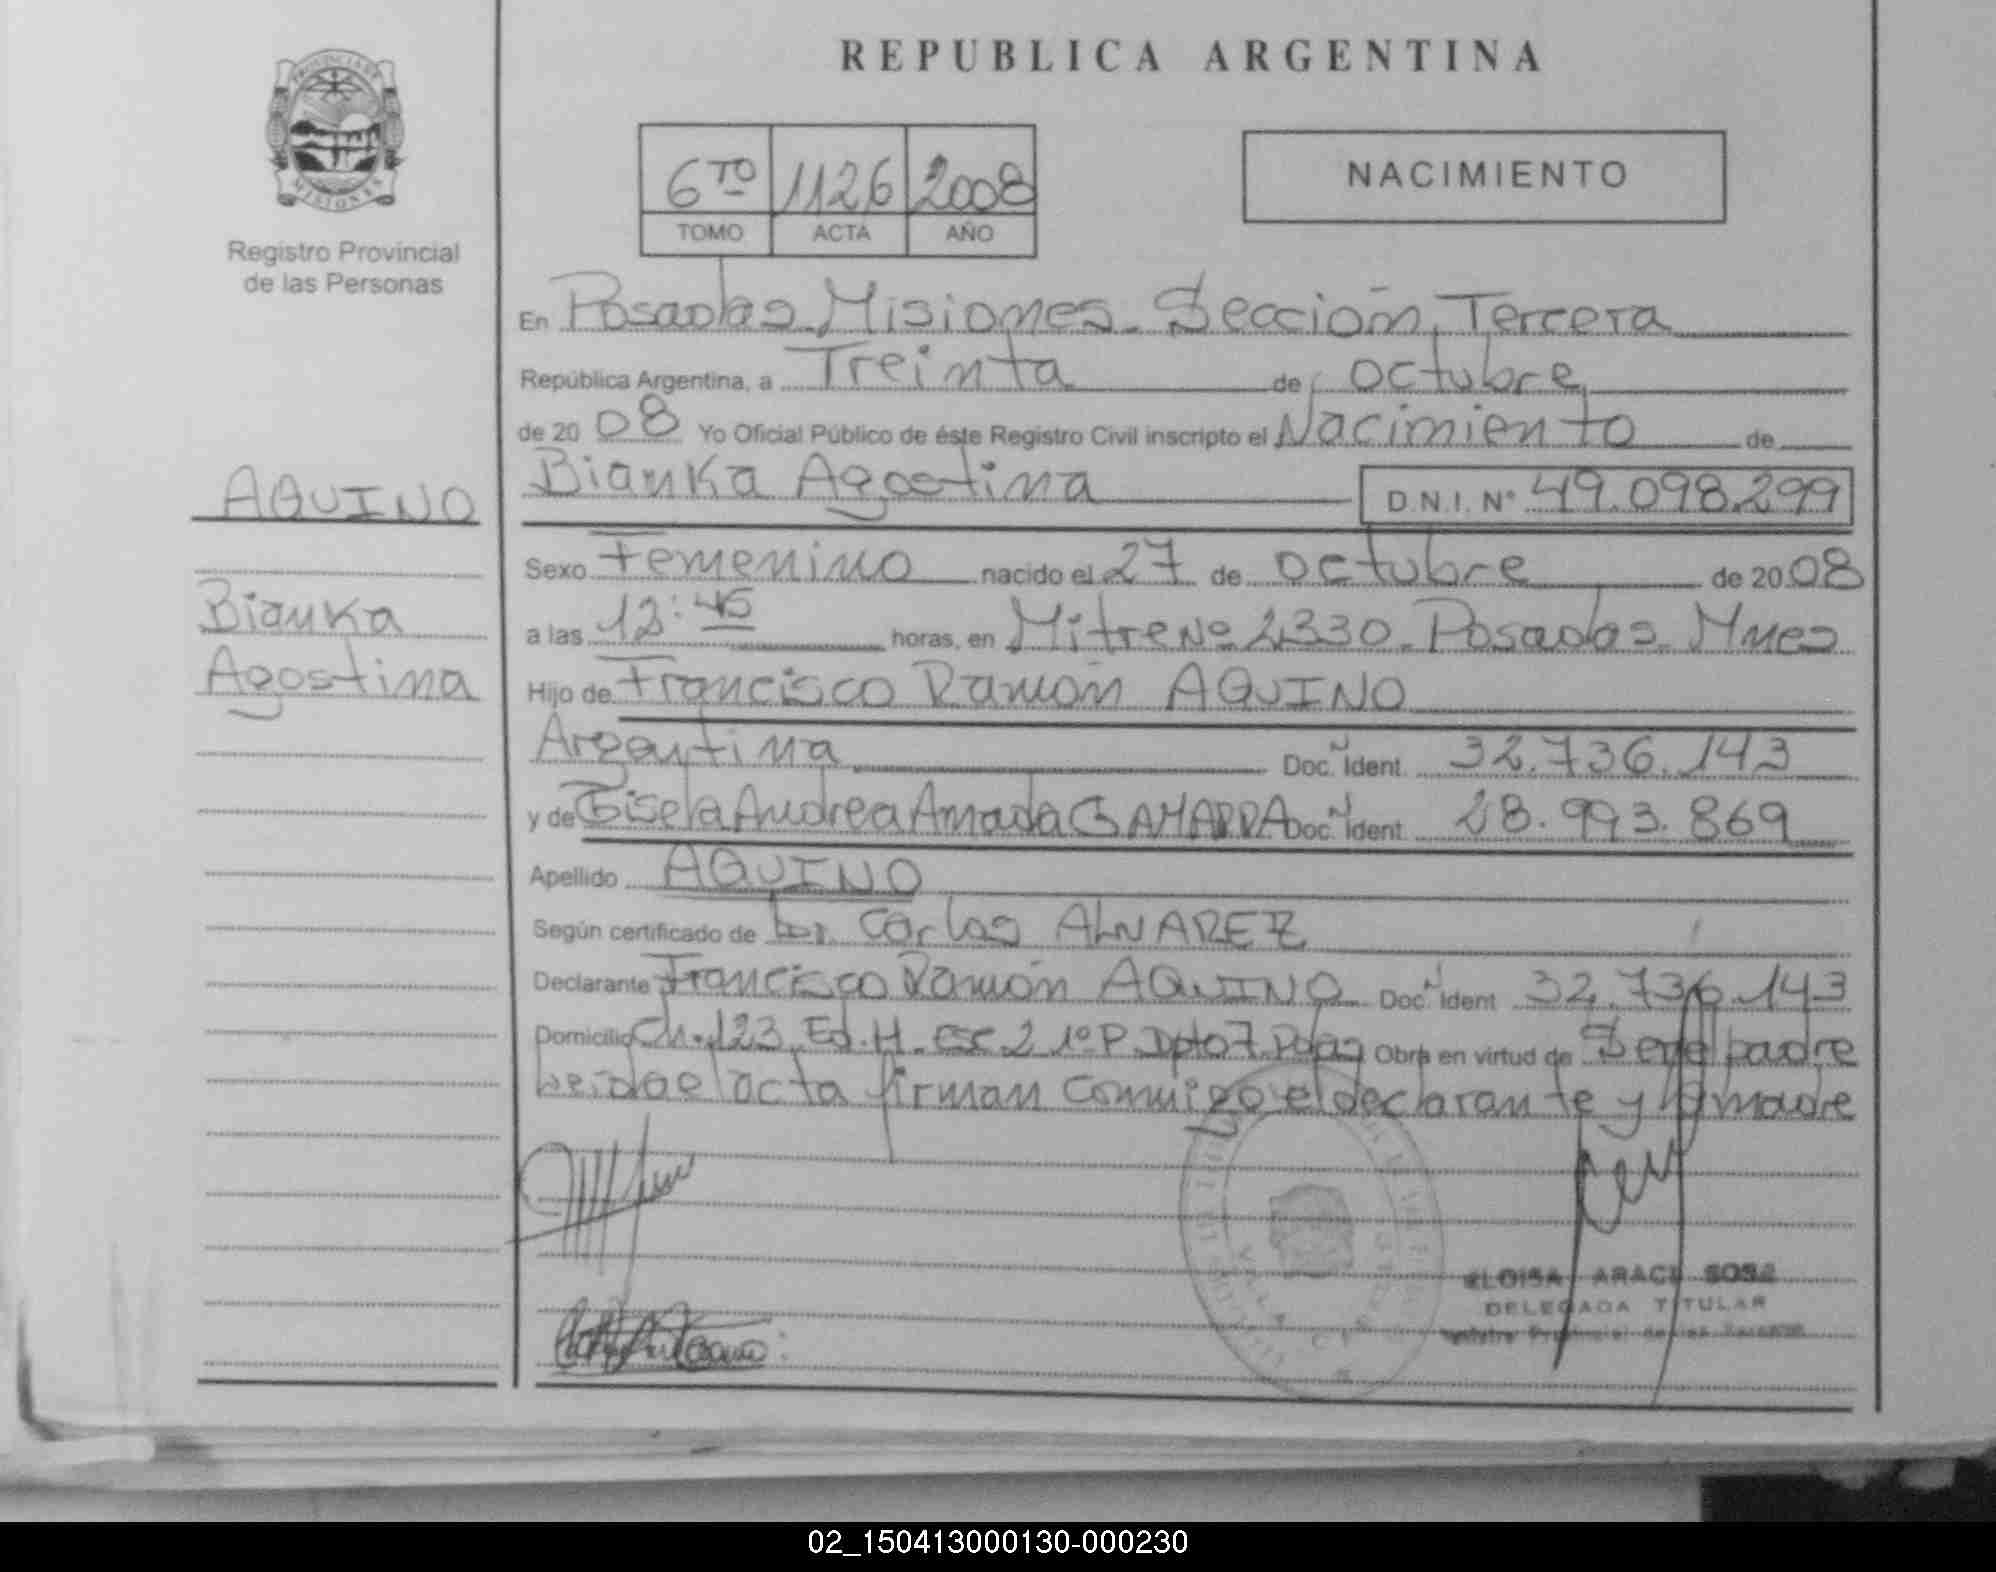 REPUBLICA ARGENTINA
PROVINCIA DE
MISIONES
Registro Provincial
de las Personas
6TO 1126 2008
TOMO ACTA AÑO
NACIMIENTO
En Posadas Misiones - Sección Tercera
República Argentina, a Treinta de octubre
de 20 08 Yo Oficial Público de éste Registro Civil inscripto el Nacimiento de
AQUINO
Bianka Agostina D.N.I. Nº 49.098.299
Sexo Femenino nacido el 27 de octubre de 20 08
Bianka
a las 12:45 horas, en Mitre Nº 2330 - Posadas - Mnes
Agostina
Hijo de Francisco Ramón AQUINO
Argentina Doc. Ident. 32.736.143
y de Gisela Andrea Amada GAMARRA Doc. Ident. 28.993.869
Apellido AQUINO
Según certificado de Dr. Carlos ALVAREZ
Declarante Francisco Ramón AQUINO Doc. Ident 32.736.143
Domicilio Ch. 123 Ed. H. esc 2 1º P. Dpto 7. Pdas Obra en virtud de Ser el padre
Leida el acta firman conmigo el declarante y la madre
ELOISA ARACI SOSA
DELEGADA TITULAR
Registro Provincial de las Personas
02_150413000130-000230